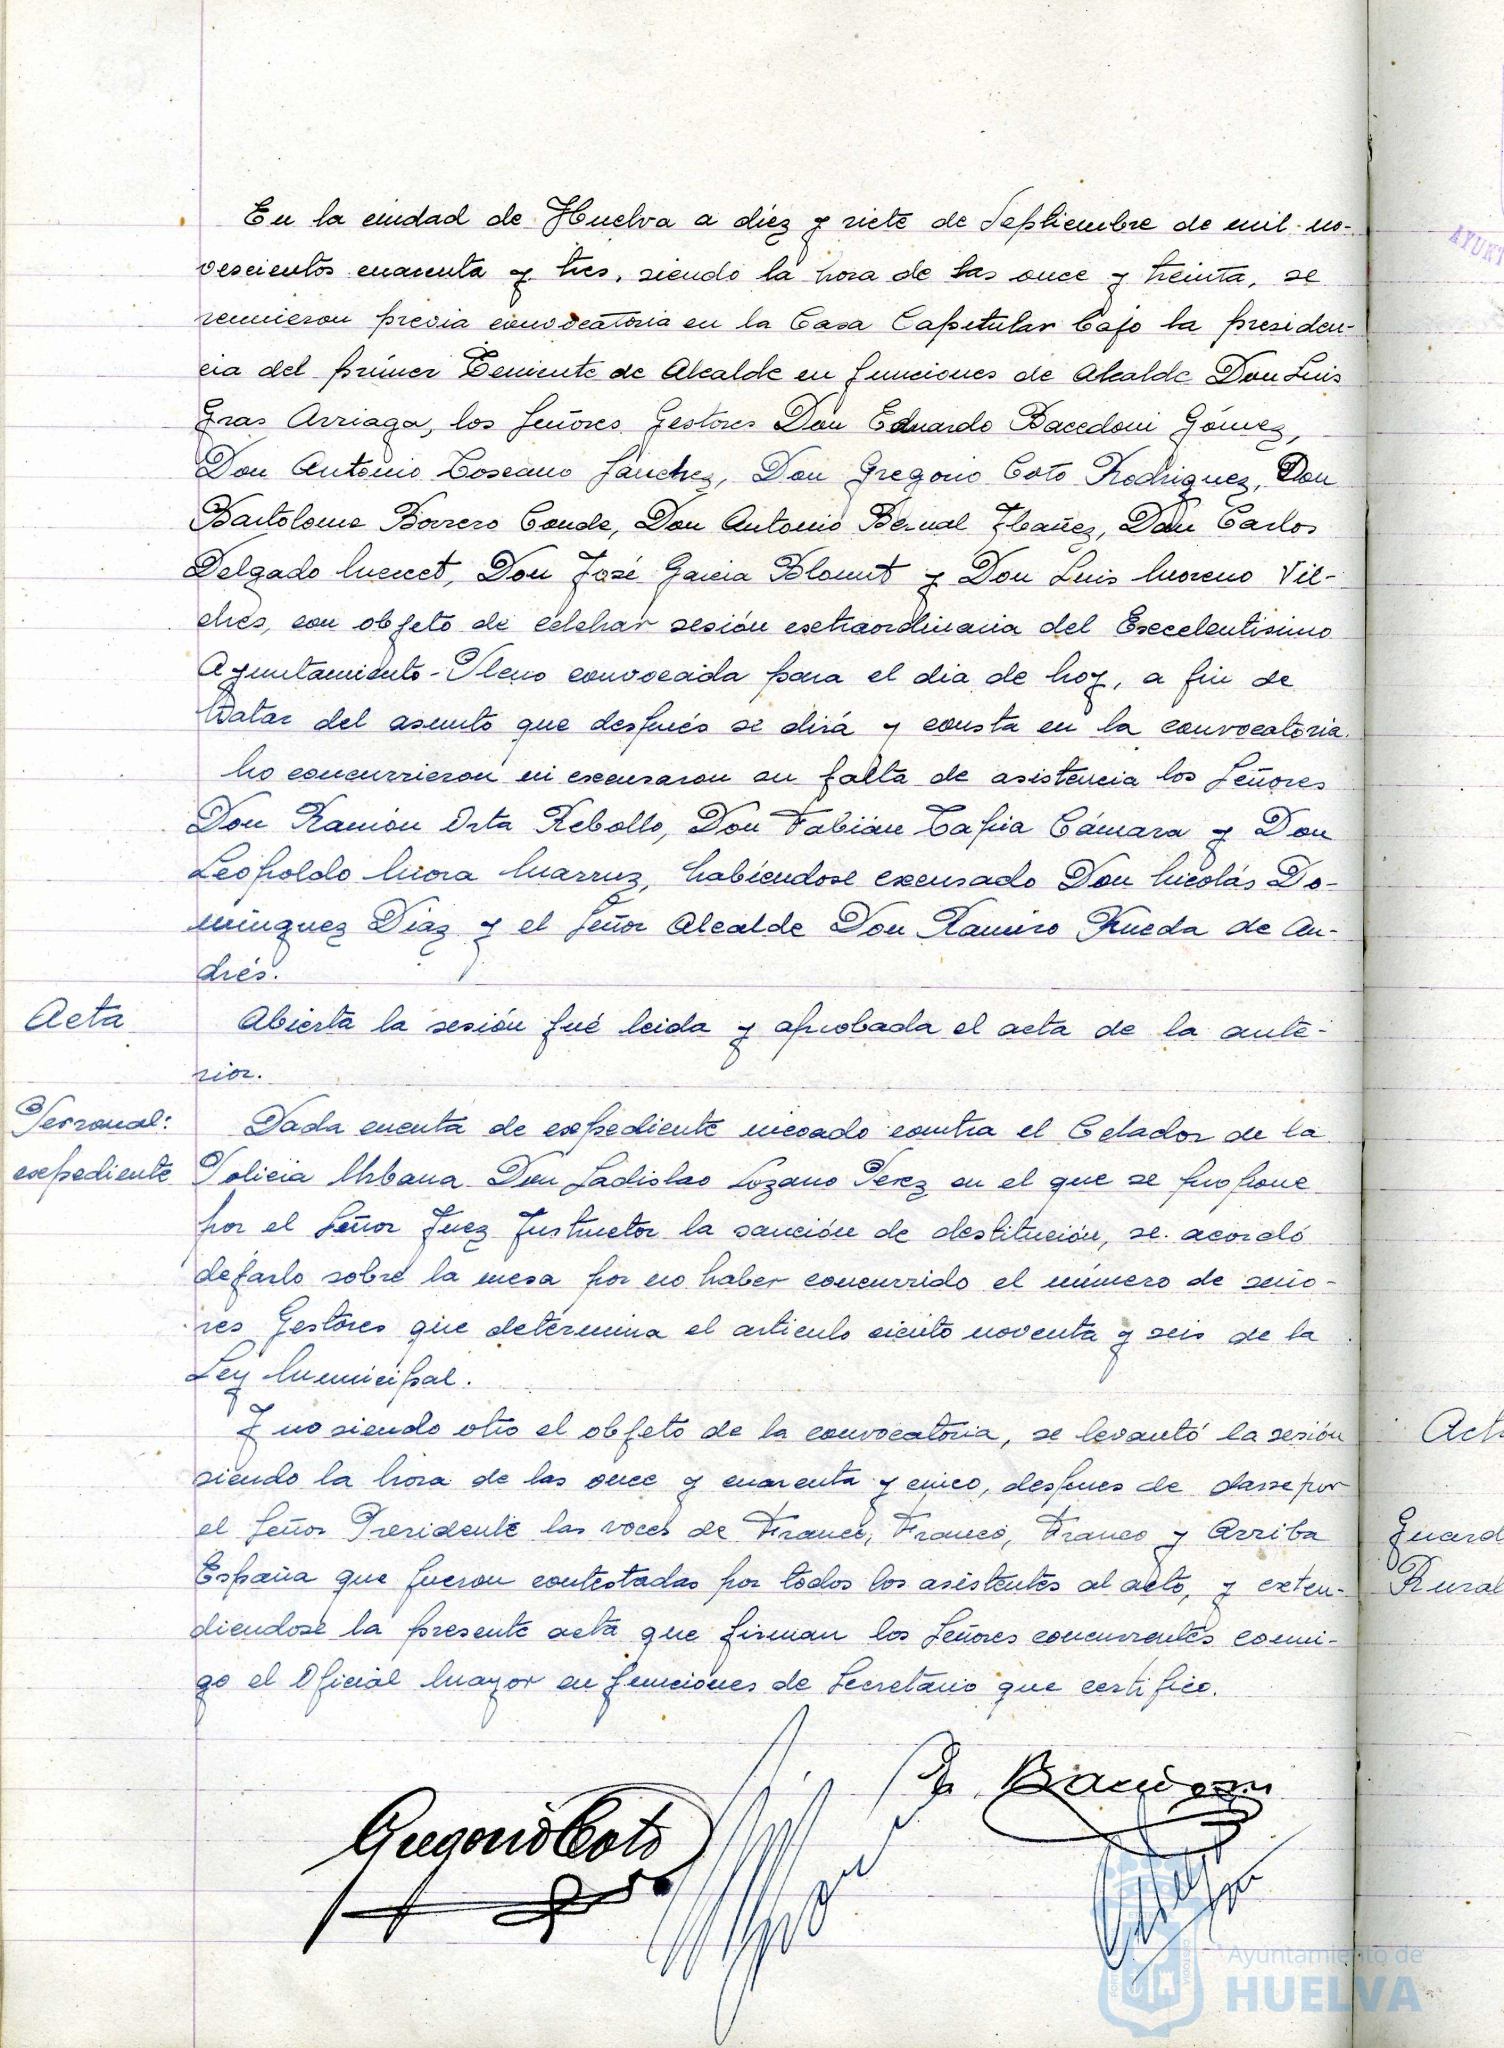 En la ciudad de Huelva a diez y siete de Septiembre de mil no-
vescientos cuarenta y tres, siendo la hora de las once y treinta, se
reunieron previa convocatoria en la Casa Capitular bajo la presiden-
cia del primer Teniente de Alcalde en funciones de Alcalde Don Luis
Gras Arriaga, los Señores Gestores Don Eduardo Bacedoni Gómez,
Don Antonio Toscano Sanchez, Don Gregorio Coto Rodriguez, Don
Bartolome Borrero Conde, Don Antonio Bernal Ibañez, Don Carlos
Delgado Mercet, Don José Garcia Blount y Don Luis Moreno Vil-
ches, con objeto de celebrar sesión extraordinaria del Excelentisimo
Ayuntamiento-Pleno convocada para el dia de hoy, a fin de
tratar del asunto que después se dirá y consta en la convocatoria.
No concurrieron ni excusaron su falta de asistencia los Señores
Don Ramón Orta Rebollo, Don Fabián Tapia Cámara y Don
Leopoldo Mora Marruz, habiendose excusado Don Nicolás Do-
minguez Diaz y el Señor Alcalde Don Ramiro Rueda de An-
drés.
Acta
Abierta la sesión fué leida y aprobada el acta de la ante-
rior.
Personal:
expediente
Dada cuenta de expediente incoado contra el Celador de la
Policia Urbana Don Ladislao Lozano Perez en el que se propone
por el Señor Juez Instructor la sanción de destitución, se acordó
dejarlo sobre la mesa por no haber concurrido el número de seño-
res Gestores que determina el articulo ciento noventa y seis de la
Ley Municipal.
Y no siendo otro el objeto de la convocatoria, se levantó la sesión
siendo la hora de las once y cuarenta y cinco, despues de darse por
el Señor Presidente las voces de Franco, Franco, Franco y Arriba
España que fueron contestadas por todos los asistentes al acto, y exten-
diendose la presente acta que firman los Señores concurrentes conmi-
go el Oficial Mayor en funciones de Secretario que certifico.
Gregorio Coto
E. Bacedoni
Ayuntamiento de
HUELVA
AYUNT
Act
Guard
Rural